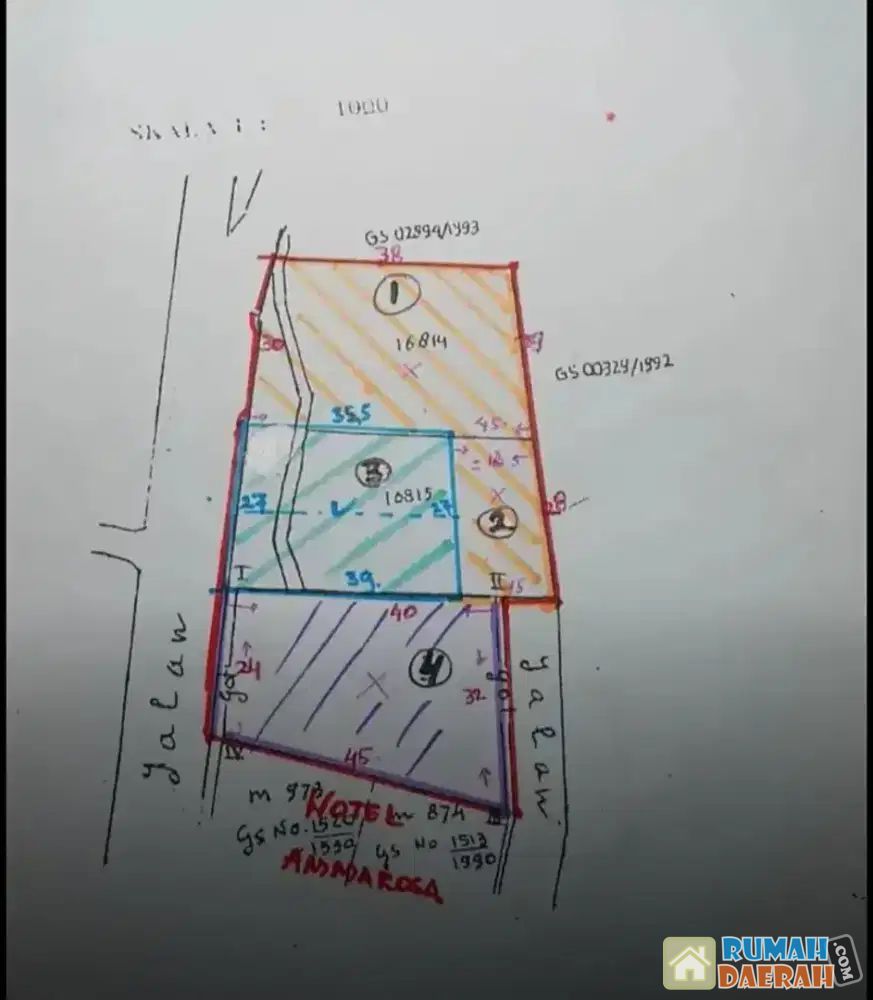 SKALA 1 : 1000
GS 02894/1993
38
1
30
16814
39
GS 00324/1992
35,5
45
= 12 5
3
10815
27
27
28
2
I
39.
II
15
40
24
4
got
32
got
Jalan
Jalan
45
m 973
m 874
HOTEL
GS No. 1520/1990
GS No 1513/1990
AMADAROSA
RUMAH
DAERAH
.COM